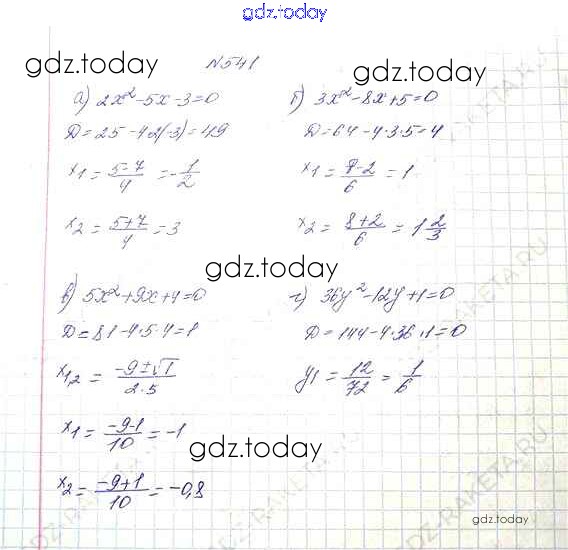 gdz.today
№541
gdz.today gdz.today
а) 2x²-5x-3=0
D=25-4·2(-3)=49
x1 = (5-7)/4 = -1/2
x2 = (5+7)/4 = 3
б) 3x²-8x+5=0
D=64-4·3·5=4
x1 = (8-2)/6 = 1
x2 = (8+2)/6 = 1 2/3
gdz.today
в) 5x²+9x+4=0
D=81-4·5·4=1
x1,2 = (-9±√1)/(2·5)
x1 = (-9-1)/10 = -1
x2 = (-9+1)/10 = -0,8
г) 36y²-12y+1=0
D=144-4·36·1=0
y1 = 12/72 = 1/6
gdz.today
gdz.today
GDZ-RAKETA.RU